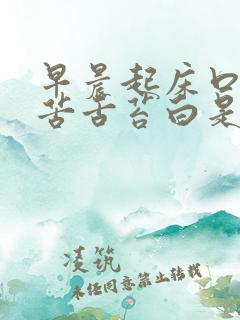 早晨起床口
苦舌苔白是
凌筑
未经同意禁止转载